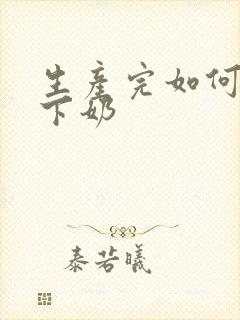 生産完如何
下奶
泰若曦